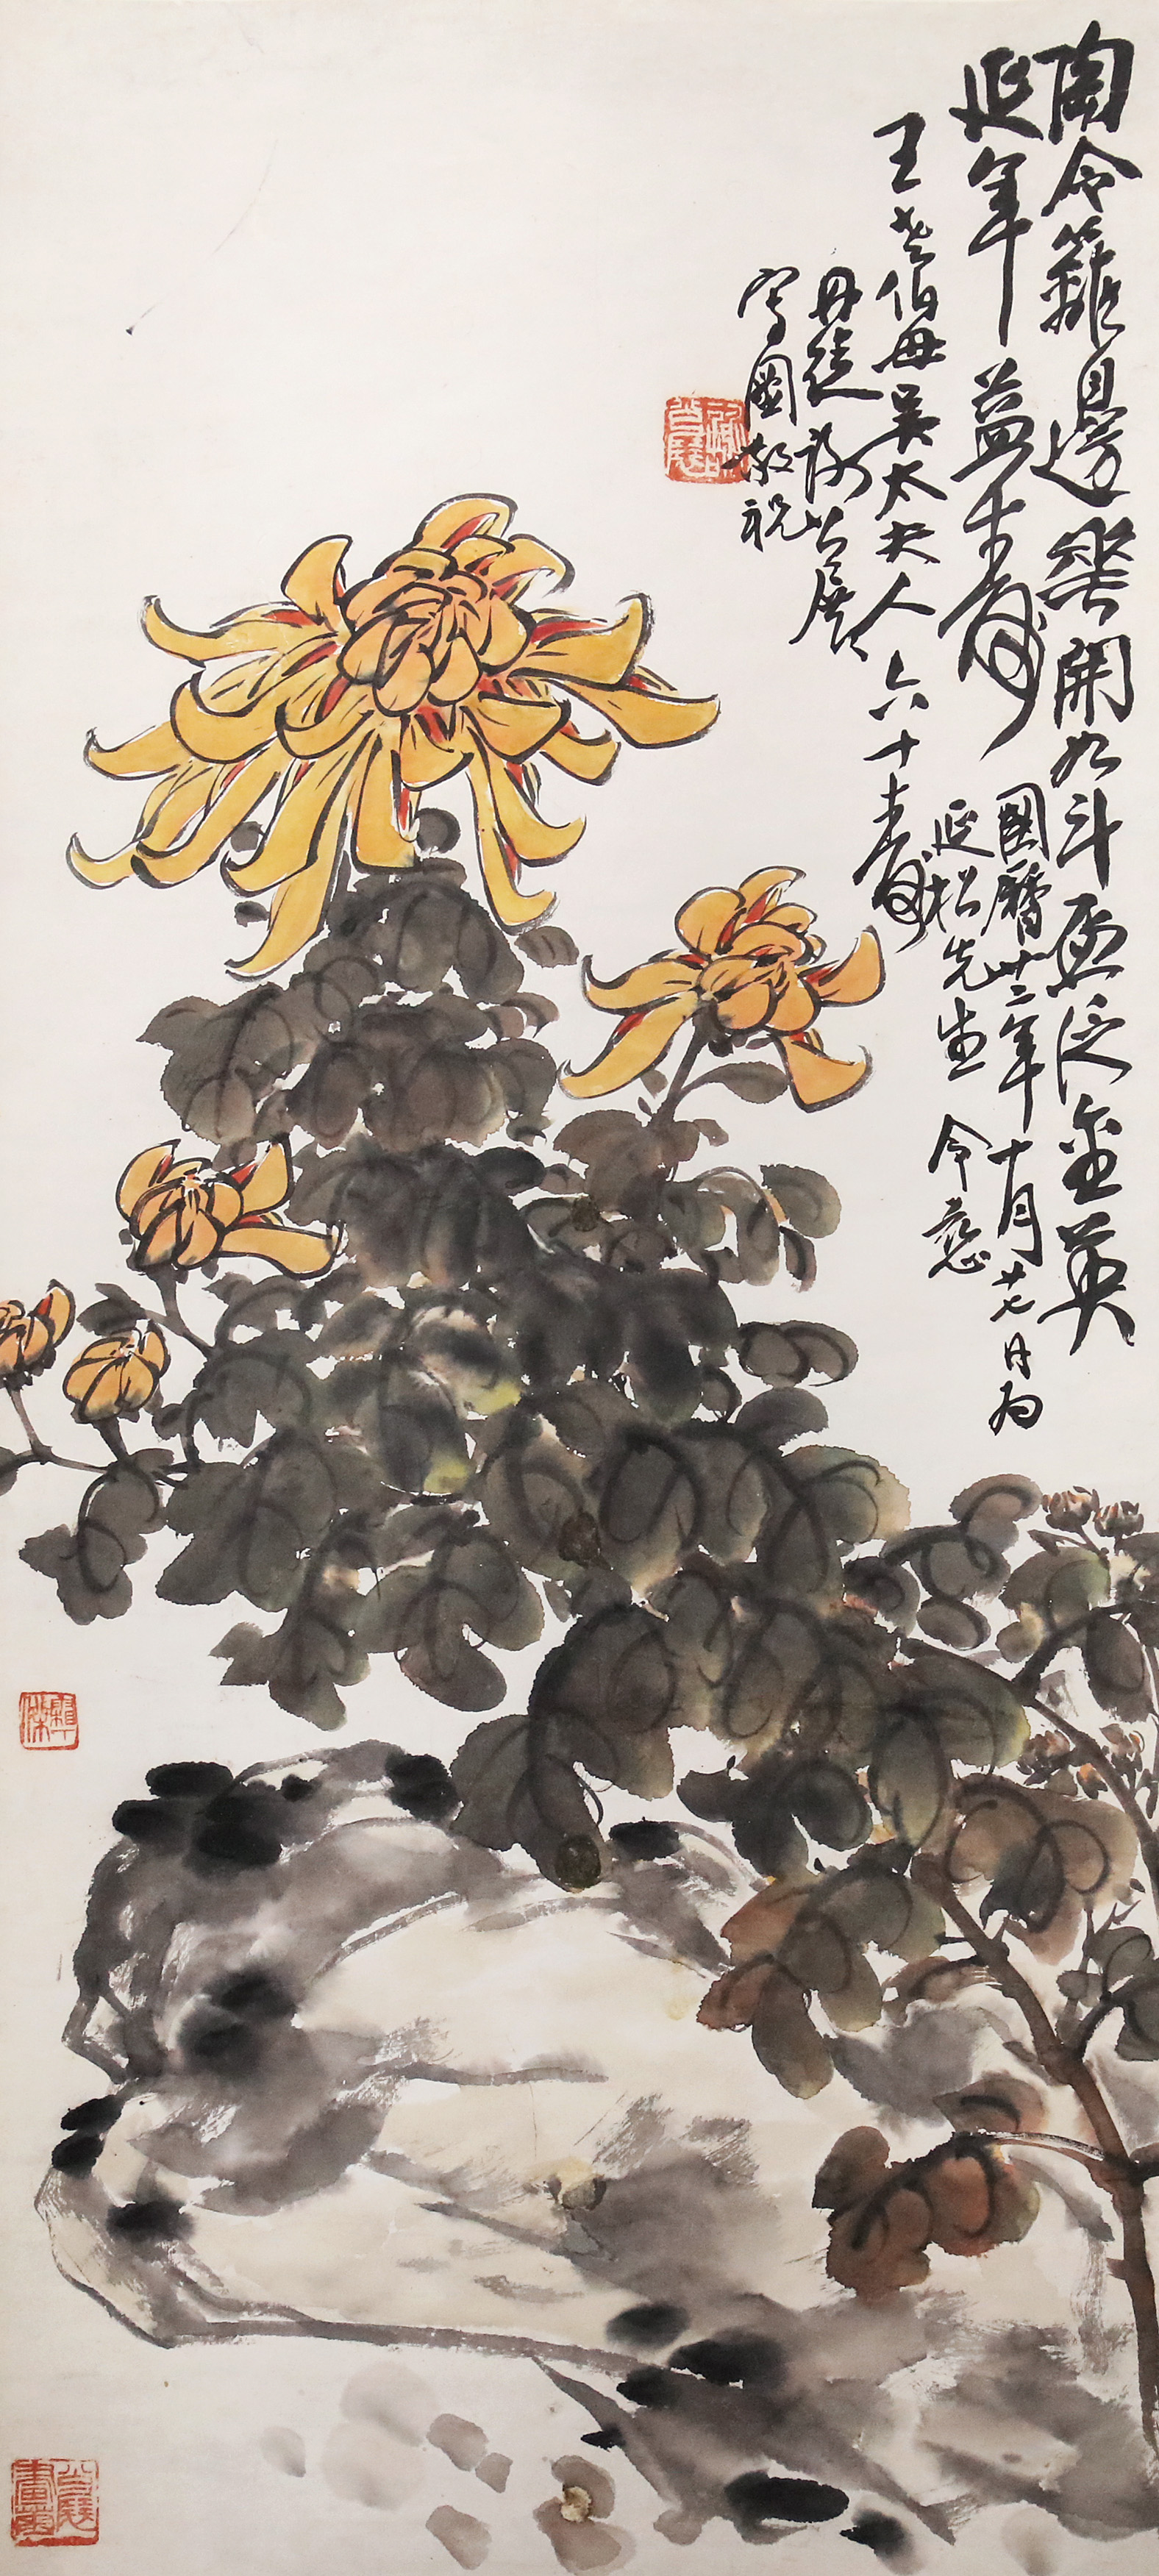 陶令籬邊花開九斗血泛金英
延年益壽
國曆卅二年十月十七日為
延松先生 令慈
王老伯母吳太夫人六十壽
丹徒謝公展
寫圖敬祝